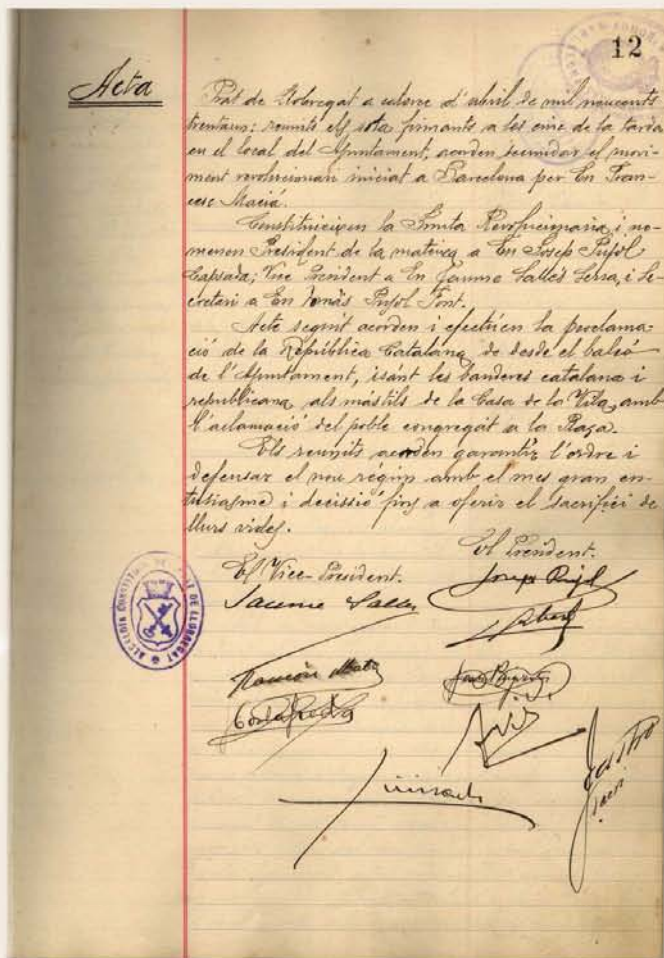 12
Acta
Prat de Llobregat a catorce d'abril de mil noucents
trentaun: reunits els sota firmants a les cinc de la tarda
en el local del Ajuntament, acorden secundar el movi-
ment revolucionari iniciat a Barcelona per En Fran-
cesc Maciá.
Constitueixen la Junta Revolucionaria i no-
menen President de la mateixa a En Josep Pujol
Capsada; Vice President a En Jaume Sallés Serra, i Se-
cretari a En Tomás Pujol Font.
Acte seguit acorden i efectúen la proclama-
ció de la República Catalana de desde el balcó
de l'Ajuntament, isánt les banderes catalana i
republicana, als mástils de la Casa de la Vila, amb
l'aclamació del poble congregat a la Plaça.
Els reunits acorden garantir l'ordre i
defensar el nou régim amb el mes gran en-
tusiasme i decissió fins a oferir el sacrifici de
llurs vides.
El President.
El Vice-President.
Josep Pujol
Jaume Salles
ALCALDIA CONSTITUCIONAL DE PRAT DE LLOBREGAT
Ramón
Castro